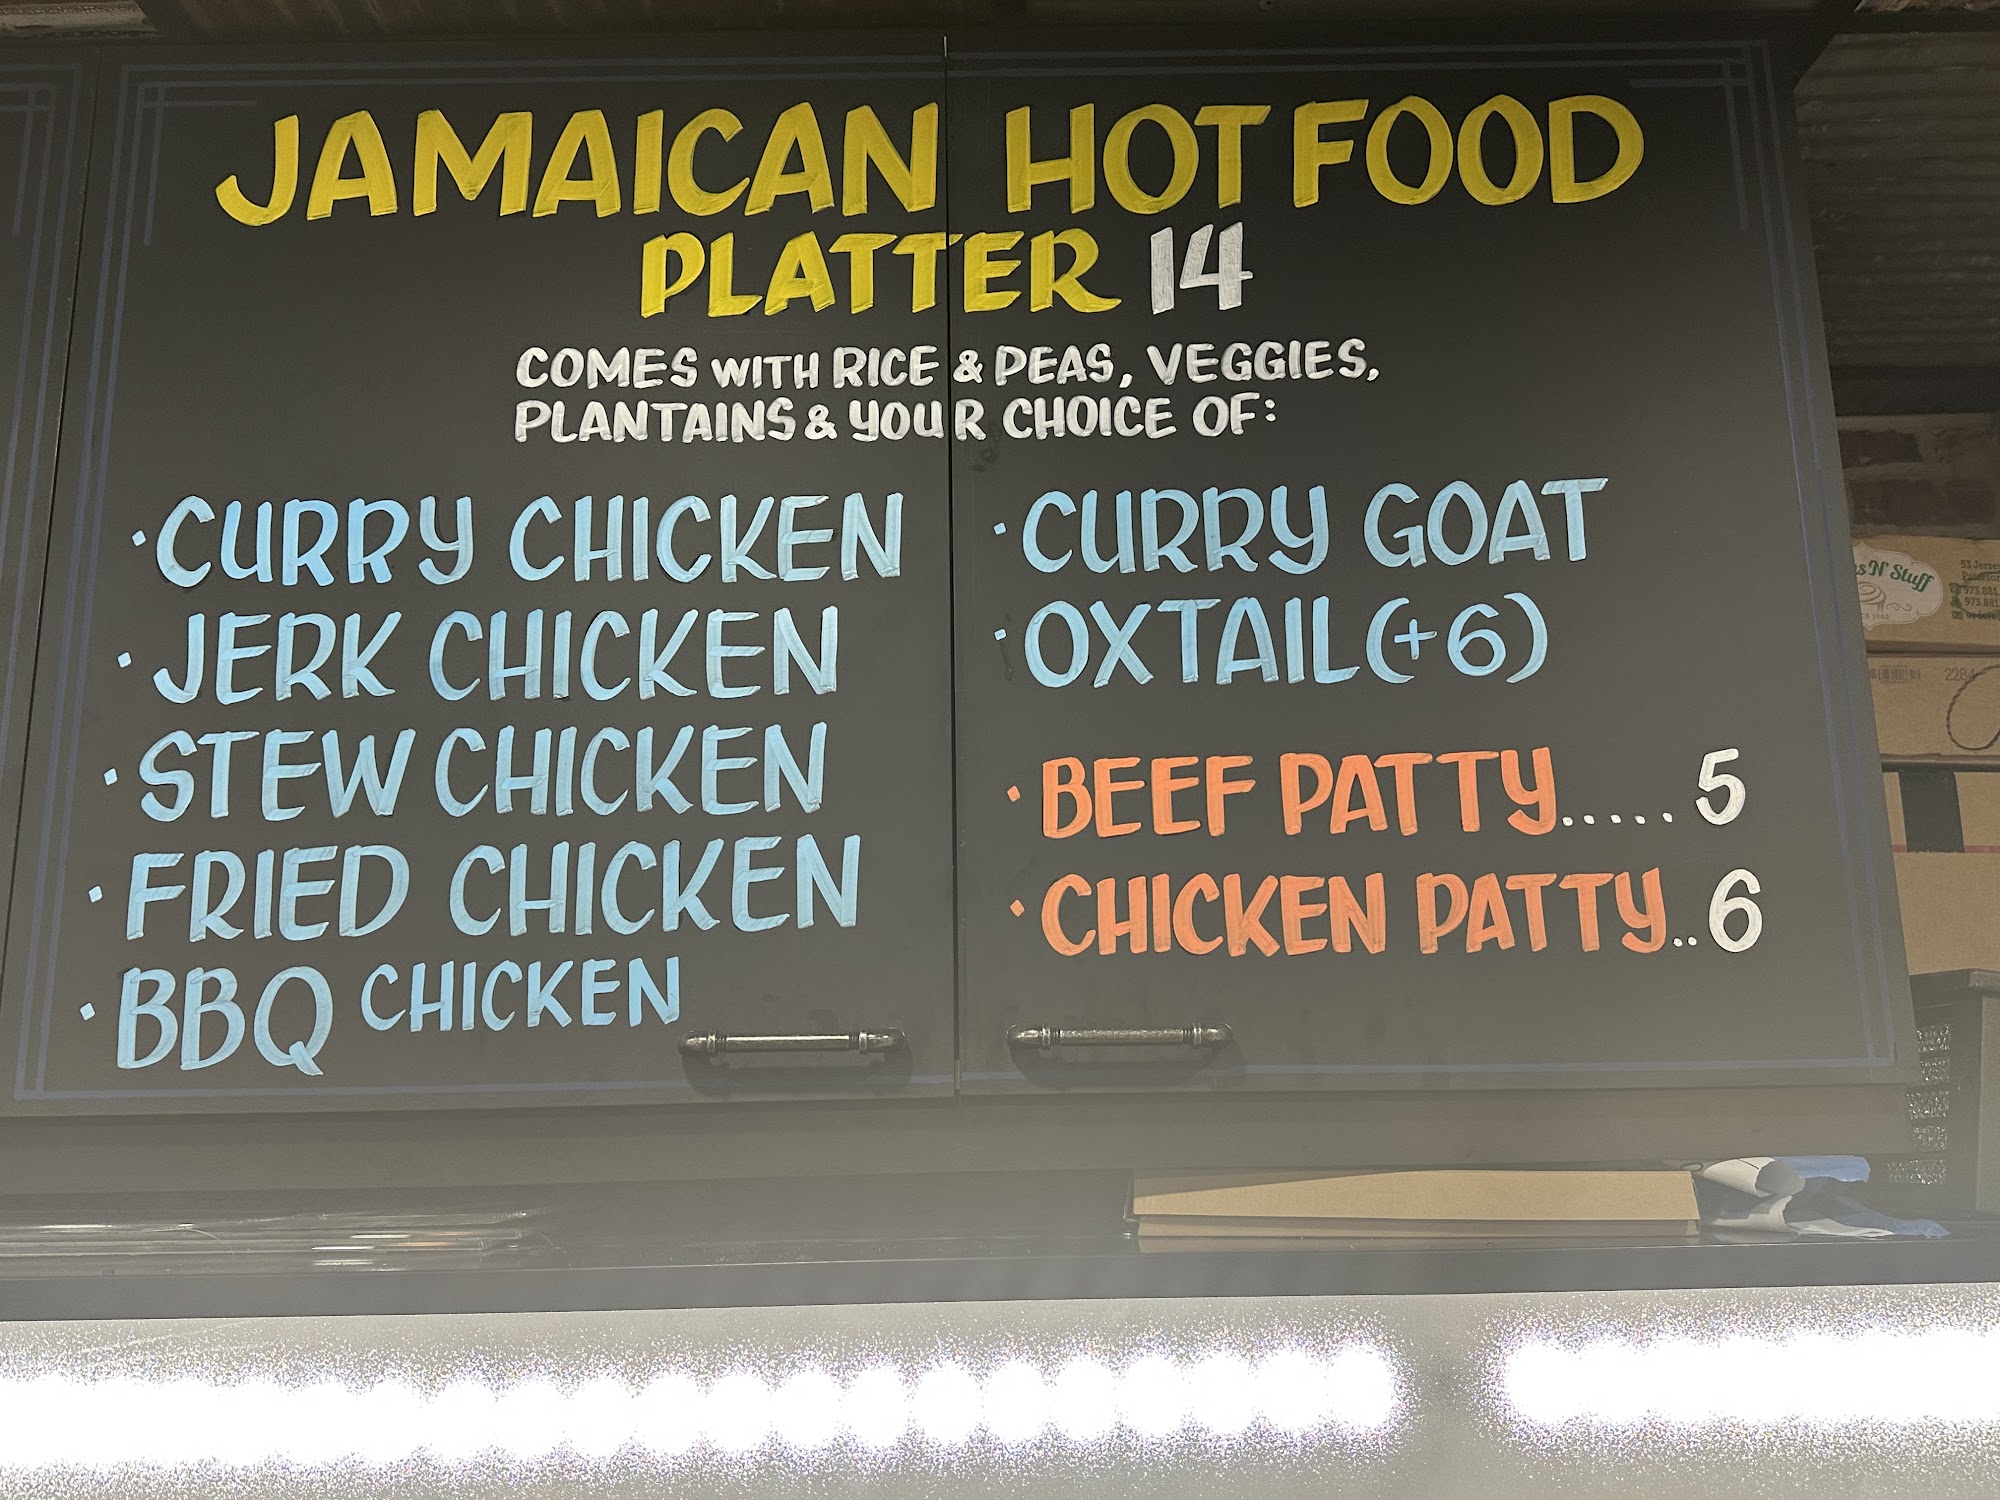 JAMAICAN HOT FOOD
PLATTER 14
COMES WITH RICE & PEAS, VEGGIES,
PLANTAINS & YOUR CHOICE OF:
· CURRY CHICKEN
· JERK CHICKEN
· STEW CHICKEN
· FRIED CHICKEN
· BBQ CHICKEN
· CURRY GOAT
· OXTAIL (+6)
· BEEF PATTY..... 5
· CHICKEN PATTY.. 6
N' Stuff
53 Jerse
973.881
973.881
2284